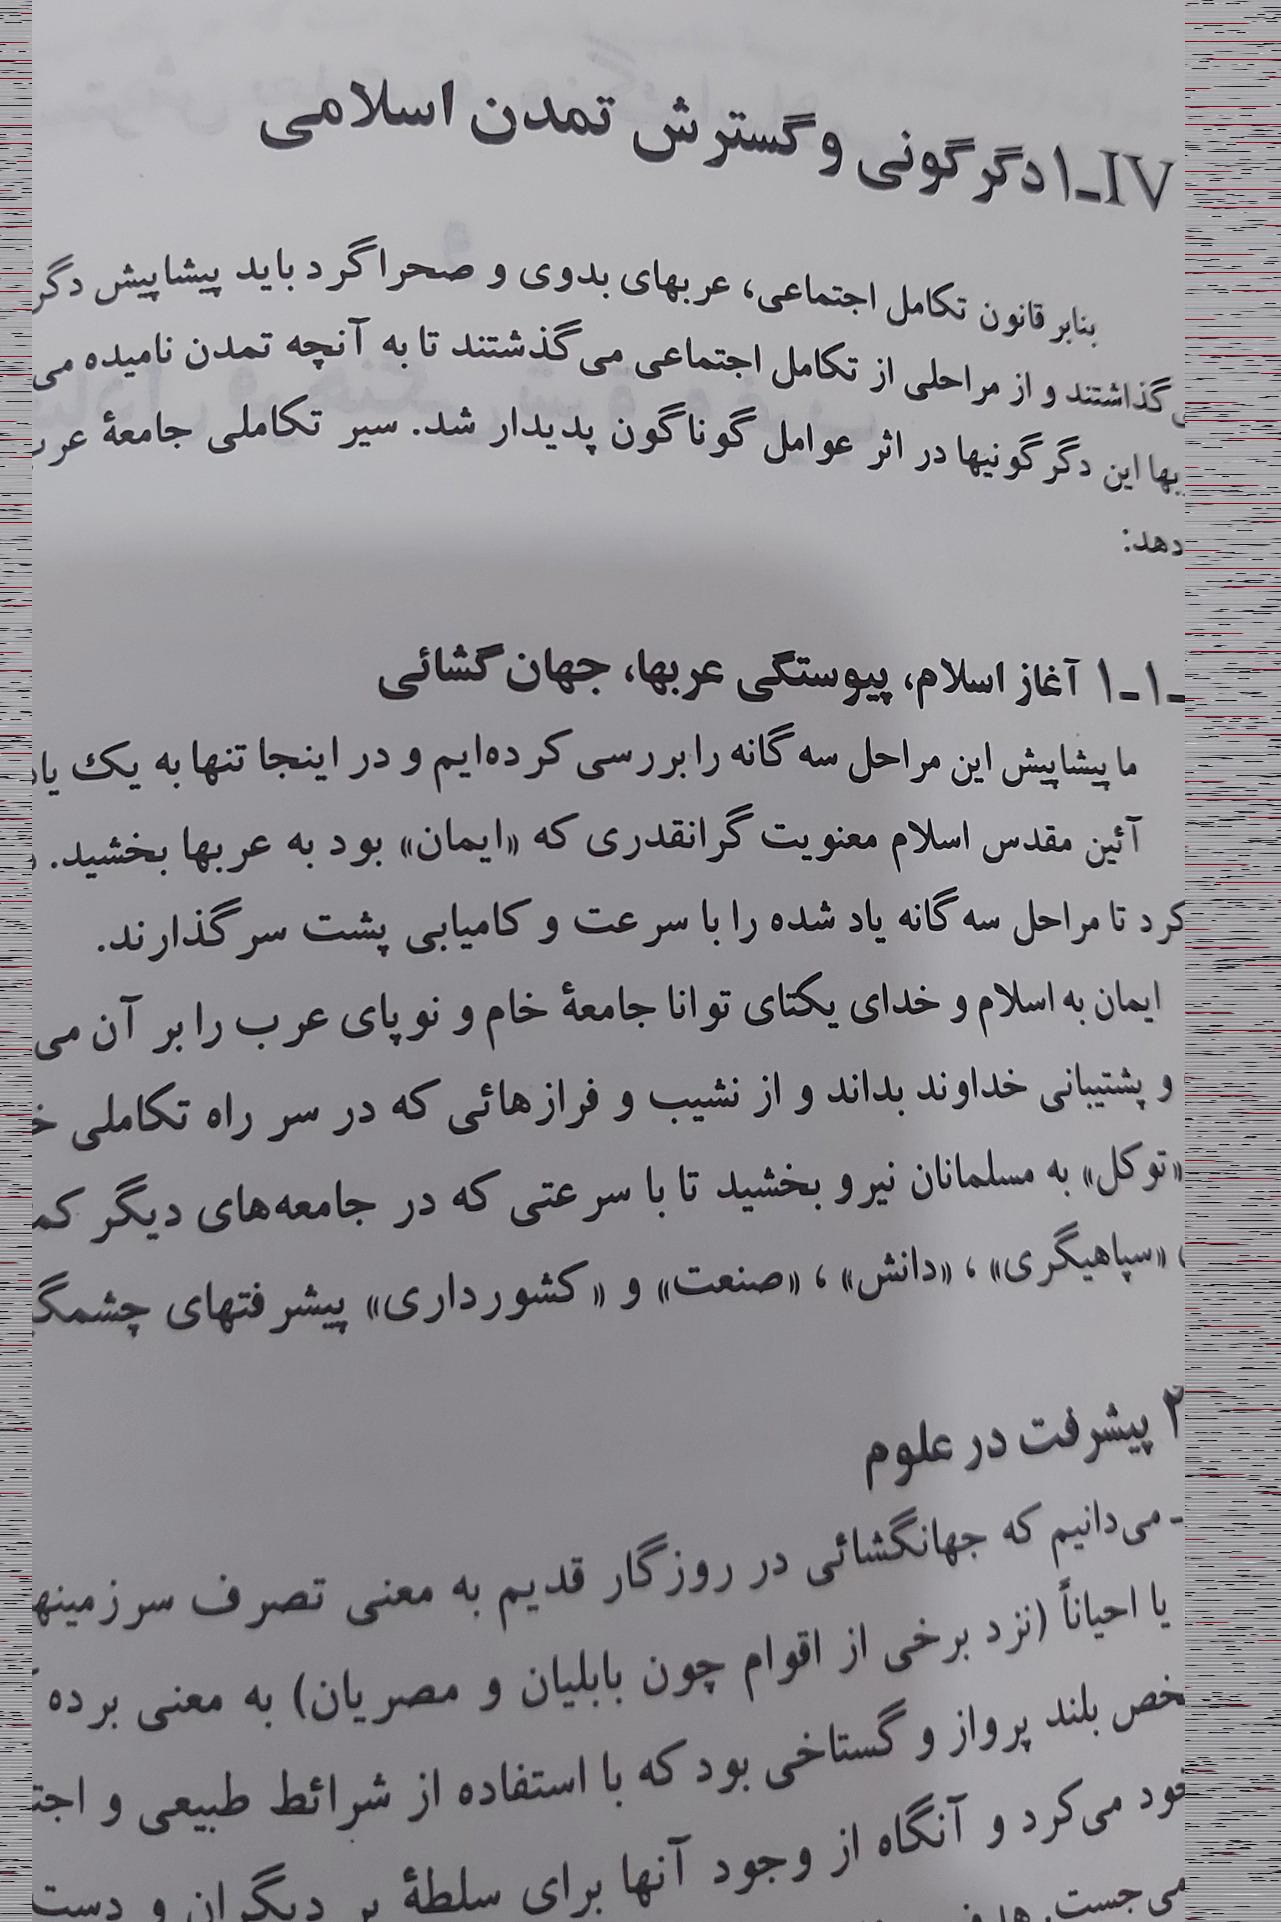 IV-۱ دگرگونی و گسترش تمدن اسلامی
بنابر قانون تکامل اجتماعی، عربهای بدوی و صحراگرد باید پیشاپیش
گذاشتند و از مراحلی از تکامل اجتماعی می‌گذشتند تا به آنچه تمدن نامیده می
این دگرگونیها در اثر عوامل گوناگون پدیدار شد. سیر تکاملی جامعهٔ
دهد:
۱-۱ آغاز اسلام، پیوستگی عربها، جهان‌گشائی
ما پیشاپیش این مراحل سه‌گانه را بررسی کرده‌ایم و در اینجا تنها به یک
آئین مقدس اسلام معنویت گرانقدری که «ایمان» بود به عربها بخشید.
کرد تا مراحل سه‌گانه یاد شده را با سرعت و کامیابی پشت سر گذارند.
ایمان به اسلام و خدای یکتای توانا جامعهٔ خام و نوپای عرب را بر آن می
و پشتیبانی خداوند بداند و از نشیب و فرازهائی که در سر راه تکاملی
«توکل» به مسلمانان نیرو بخشید تا با سرعتی که در جامعه‌های دیگر
«سپاهیگری»، «دانش»، «صنعت» و «کشورداری» پیشرفتهای
۲ پیشرفت در علوم
- می‌دانیم که جهانگشائی در روزگار قدیم به معنی تصرف
یا احیاناً (نزد برخی از اقوام چون بابلیان و مصریان) به معنی برده
بلند پرواز و گستاخی بود که با استفاده از شرائط طبیعی و
می‌کرد و آنگاه از وجود آنها برای سلطهٔ بر دیگران و
می‌جست.